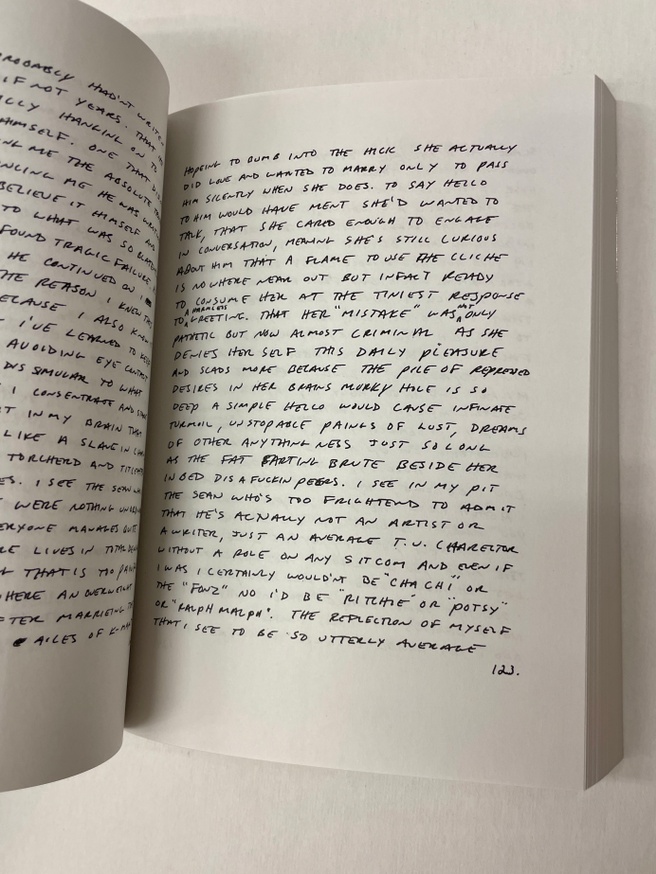 PROBABLY HAD'NT WRITE
IF NOT YEARS. THAT
HANGING ON TO
HIMSELF. ONE THAT
ME THE ABSOLUTE
ME HE WAS
BELIEVE IT HIMSELF AND
TO WHAT WAS SO
FOUND TRAGIC FAILURE
HE CONTINUED ON I
THE REASON I KNEW THIS
BECAUSE I ALSO
I'VE LEARNED TO
AVOIDING EYE CONTACT
DISSIMULAR TO WHAT
I CONSENTRATE AND
IN MY BRAIN THAT
LIKE A SLAVE IN
TORCHERD AND
I SEE THE SEAN
WERE NOTHING
EVERYONE MANAGES
LIVES IN TOTAL
THAT IS TO
WHERE AN OVERWEIGHT
AFTER MARRIEING
AILES OF K-MA
HOPEING TO BUMB INTO THE HICK SHE ACTUALLY
DID LOVE AND WANTED TO MARRY ONLY TO PASS
HIM SILENTLY WHEN SHE DOES. TO SAY HELLO
TO HIM WOULD HAVE MENT SHE'D WANTED TO
TALK, THAT SHE CARED ENOUGH TO ENGAGE
IN CONVERSATION, MEANING SHE'S STILL CURIOUS
ABOUT HIM THAT A FLAME TO USE THE CLICHE
IS NOWHERE NEAR OUT BUT INFACT READY
TO CONSUME HER AT THE TINIEST RESPONSE
TO A HARMLESS GREETING. THAT HER "MISTAKE" WAS NOT ONLY
PATHETIC BUT NOW ALMOST CRIMINAL AS SHE
DENIES HER SELF THIS DAILY PLEASURE
AND SCABS MORE BECAUSE THE PILE OF REPRESSED
DESIRES IN HER BRAINS MURKY HOLE IS SO
DEEP A SIMPLE HELLO WOULD CAUSE INFINATE
TURMOIL, UNSTOPABLE PAINGS OF LUST, DREAMS
OF OTHER ANYTHING NESS JUST SO LONG
AS THE FAT FARTING BRUTE BESIDE HER
IN BED DISAFUCKINPEERS. I SEE IN MY PIT
THE SEAN WHO'S TOO FRIGHTEND TO ADMIT
THAT HE'S ACTUALLY NOT AN ARTIST OR
A WRITER, JUST AN AVERAGE T.V. CHARECTOR
WITHOUT A ROLE ON ANY SITCOM AND EVEN IF
I WAS I CERTAINLY WOULD'NT BE "CHACHI" OR
THE "FONZ" NO I'D BE "RITCHIE" OR "POTSY"
OR "RALPH MALPH". THE REFLECTION OF MYSELF
THAT I SEE TO BE SO UTTERLY AVERAGE
123.